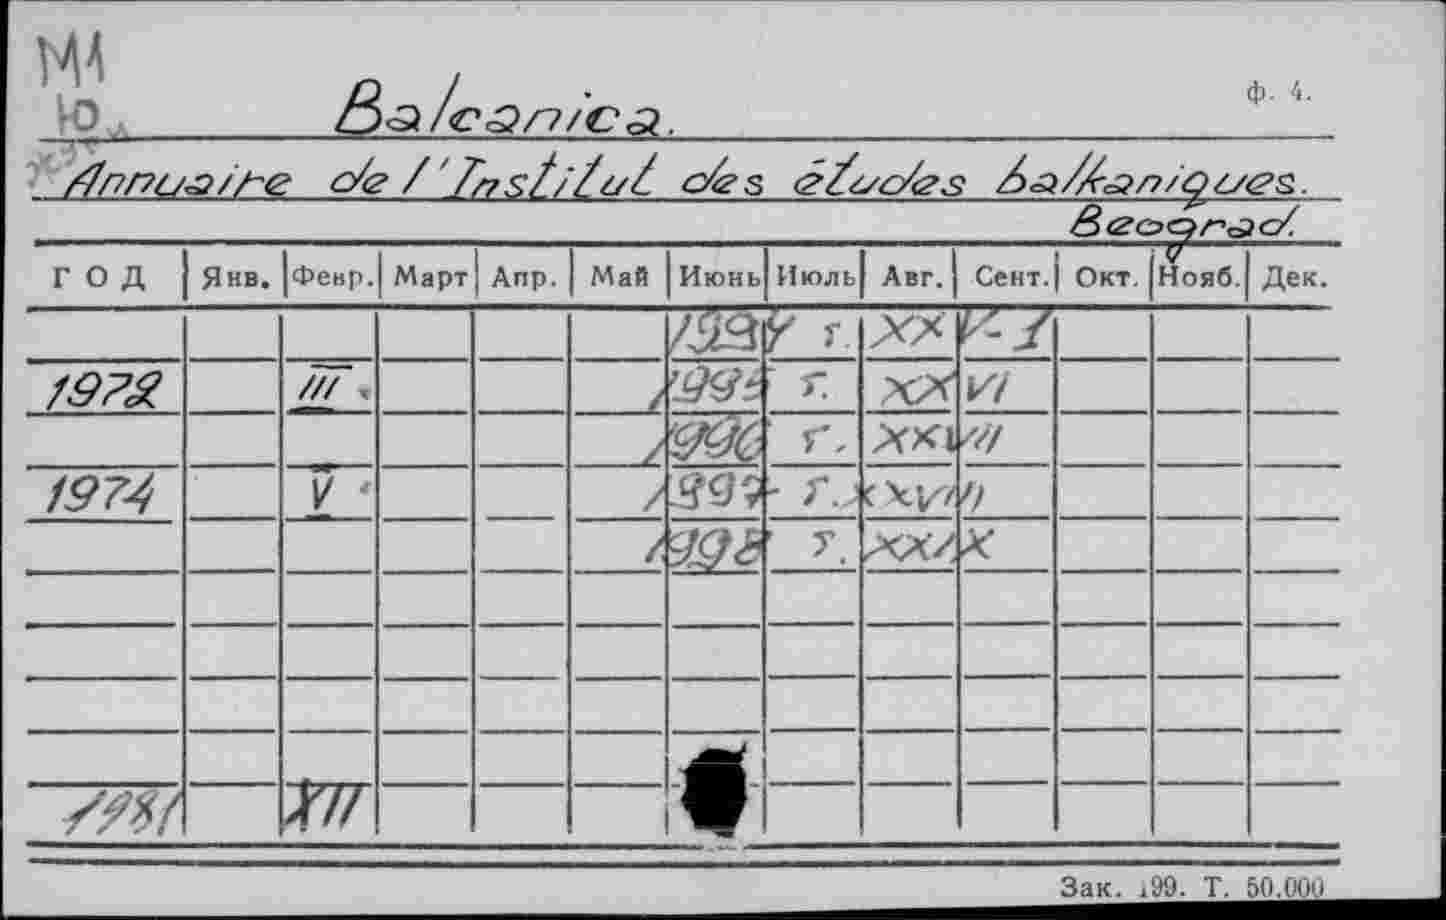 М1
Ю
Balcanica.
ф. 4.
Annuaire de l'Institut des études balkaniques.
Beograd.
ГОД Янв. Февр. Март Апр. Май Июнь Июль Авг. Сент. Окт. Нояб. Дек.
1994 г. XXV-1
1972 III 1995 г. XXVI
1996 г. XXVII
1974 V 1997 г. XXVIII
1998 г. XXIX
1981 XII
Зак. 199. Т. 50.000